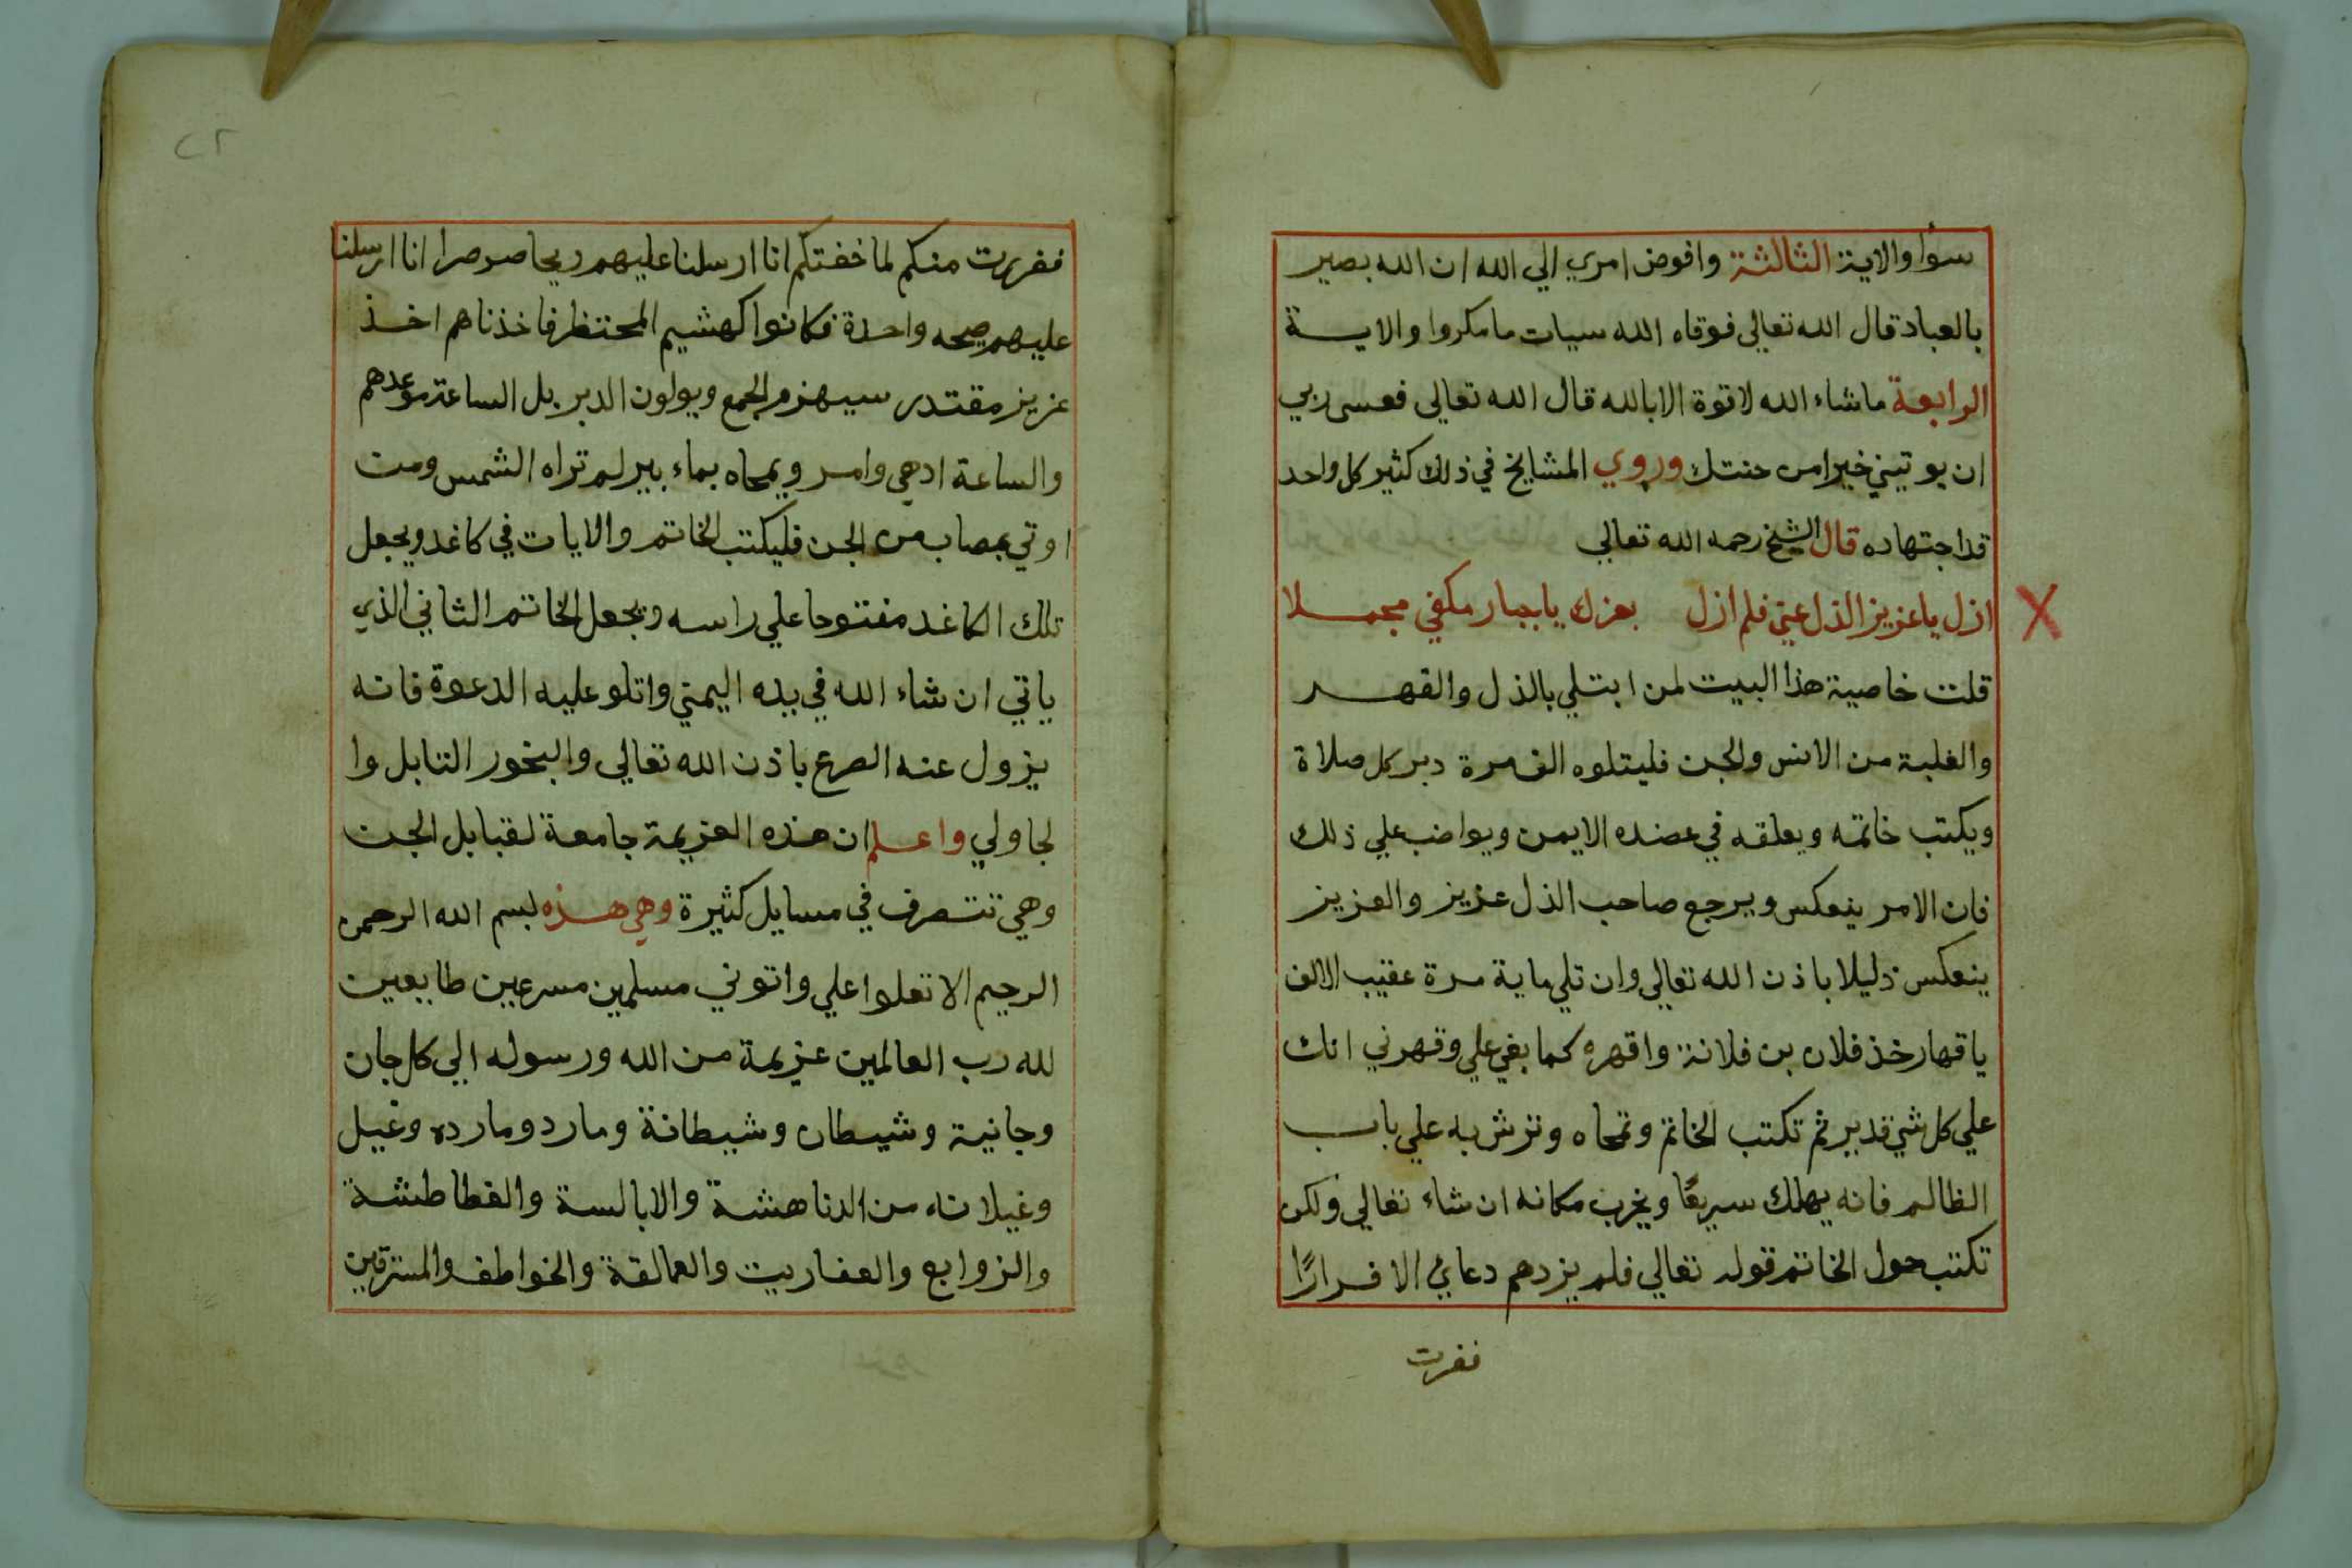 سوأ والاية الثالثة وافوض امري الي الله ان الله بصير
بالعباد قال الله تعالى فوقاه الله سيات ما مكروا والاية
الرابعة ماشاء الله لا قوة الا بالله قال الله تعالى فعسى ربي
ان يوتيني خيرا من جنتك وروي المشايخ في ذلك كثير كل واحد
قد اجتهاده قال الشيخ رحمه الله تعالي
ازل ياعزيز الذل عني فلم ازل بعزك ياجبار مكفي مجملا
قلت خاصية هذا البيت لمن ابتلي بالذل والقهر
والغلبة من الانس والجن فليتلوه الف مرة دبر كل صلاة
ويكتب خاتمه ويعلقه في عضده الايمن ويواضب علي ذلك
فان الامر ينعكس ويرجع صاحب الذل عزيز والعزيز
ينعكس ذليلا باذن الله تعالي وان تلي ماية مرة عقيب الالف
ياقهار خذ فلان بن فلانة واقهره كما بغي علي وقهرني انك
علي كل شي قدير ثم تكتب الخاتم وتمحاه وترش به علي باب
الظالم فانه يهلك سريعًا ويخرب مكانه ان شاء تعالي ولكن
تكتب حول الخاتم قوله تعالي فلم يزدهم دعاي الا فرارًا
ففرت
٢٢
ففررت منكم لما خفتكم انا ارسلنا عليهم ريحا صرصرا انا ارسلنا
عليهم صيحه واحدة فكانوا كهشيم المحتظر فاخذناهم اخذ
عزيز مقتدر سيهزم الجمع ويولون الدبر بل الساعة موعدهم
والساعة ادهي وامر ويمحاه بماء بير لم تراه الشمس ومت
اوتي بمصاب من الجن فليكتب الخاتم والايات في كاغد ويجعل
تلك الكاغد مفتوحا علي راسه ويجعل الخاتم الثاني الذي
ياتي ان شاء الله في يده اليمني واتلو عليه الدعوة فانه
يزول عنه الصرع باذن الله تعالي والبخور التابل وا
لجاولي واعلم ان هذه العزيمة جامعة لقبايل الجن
وهي تتصرف في مسايل كثيرة وهي هذه بسم الله الرحمن
الرحيم الا تعلوا علي واتوني مسلمين مسرعين طايعين
لله رب العالمين عزيمة من الله ورسوله الي كل جان
وجانية وشيطان وشيطانة ومارد ومارده وغيل
وغيلانه من الدناهشة والابالسة والغطاطشة
والزوابع والعفاريت والعمالقة والخواطف والمسترقين